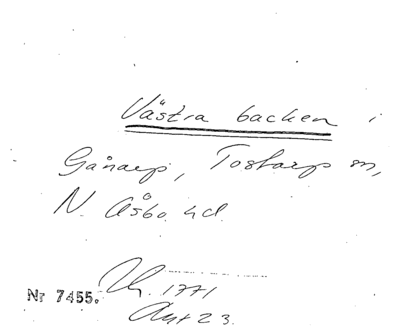 Västra backen i
Gånarp, Tostarp sn,
N. Åsbo hd.
Nr 7455.
1771
Avt 23.